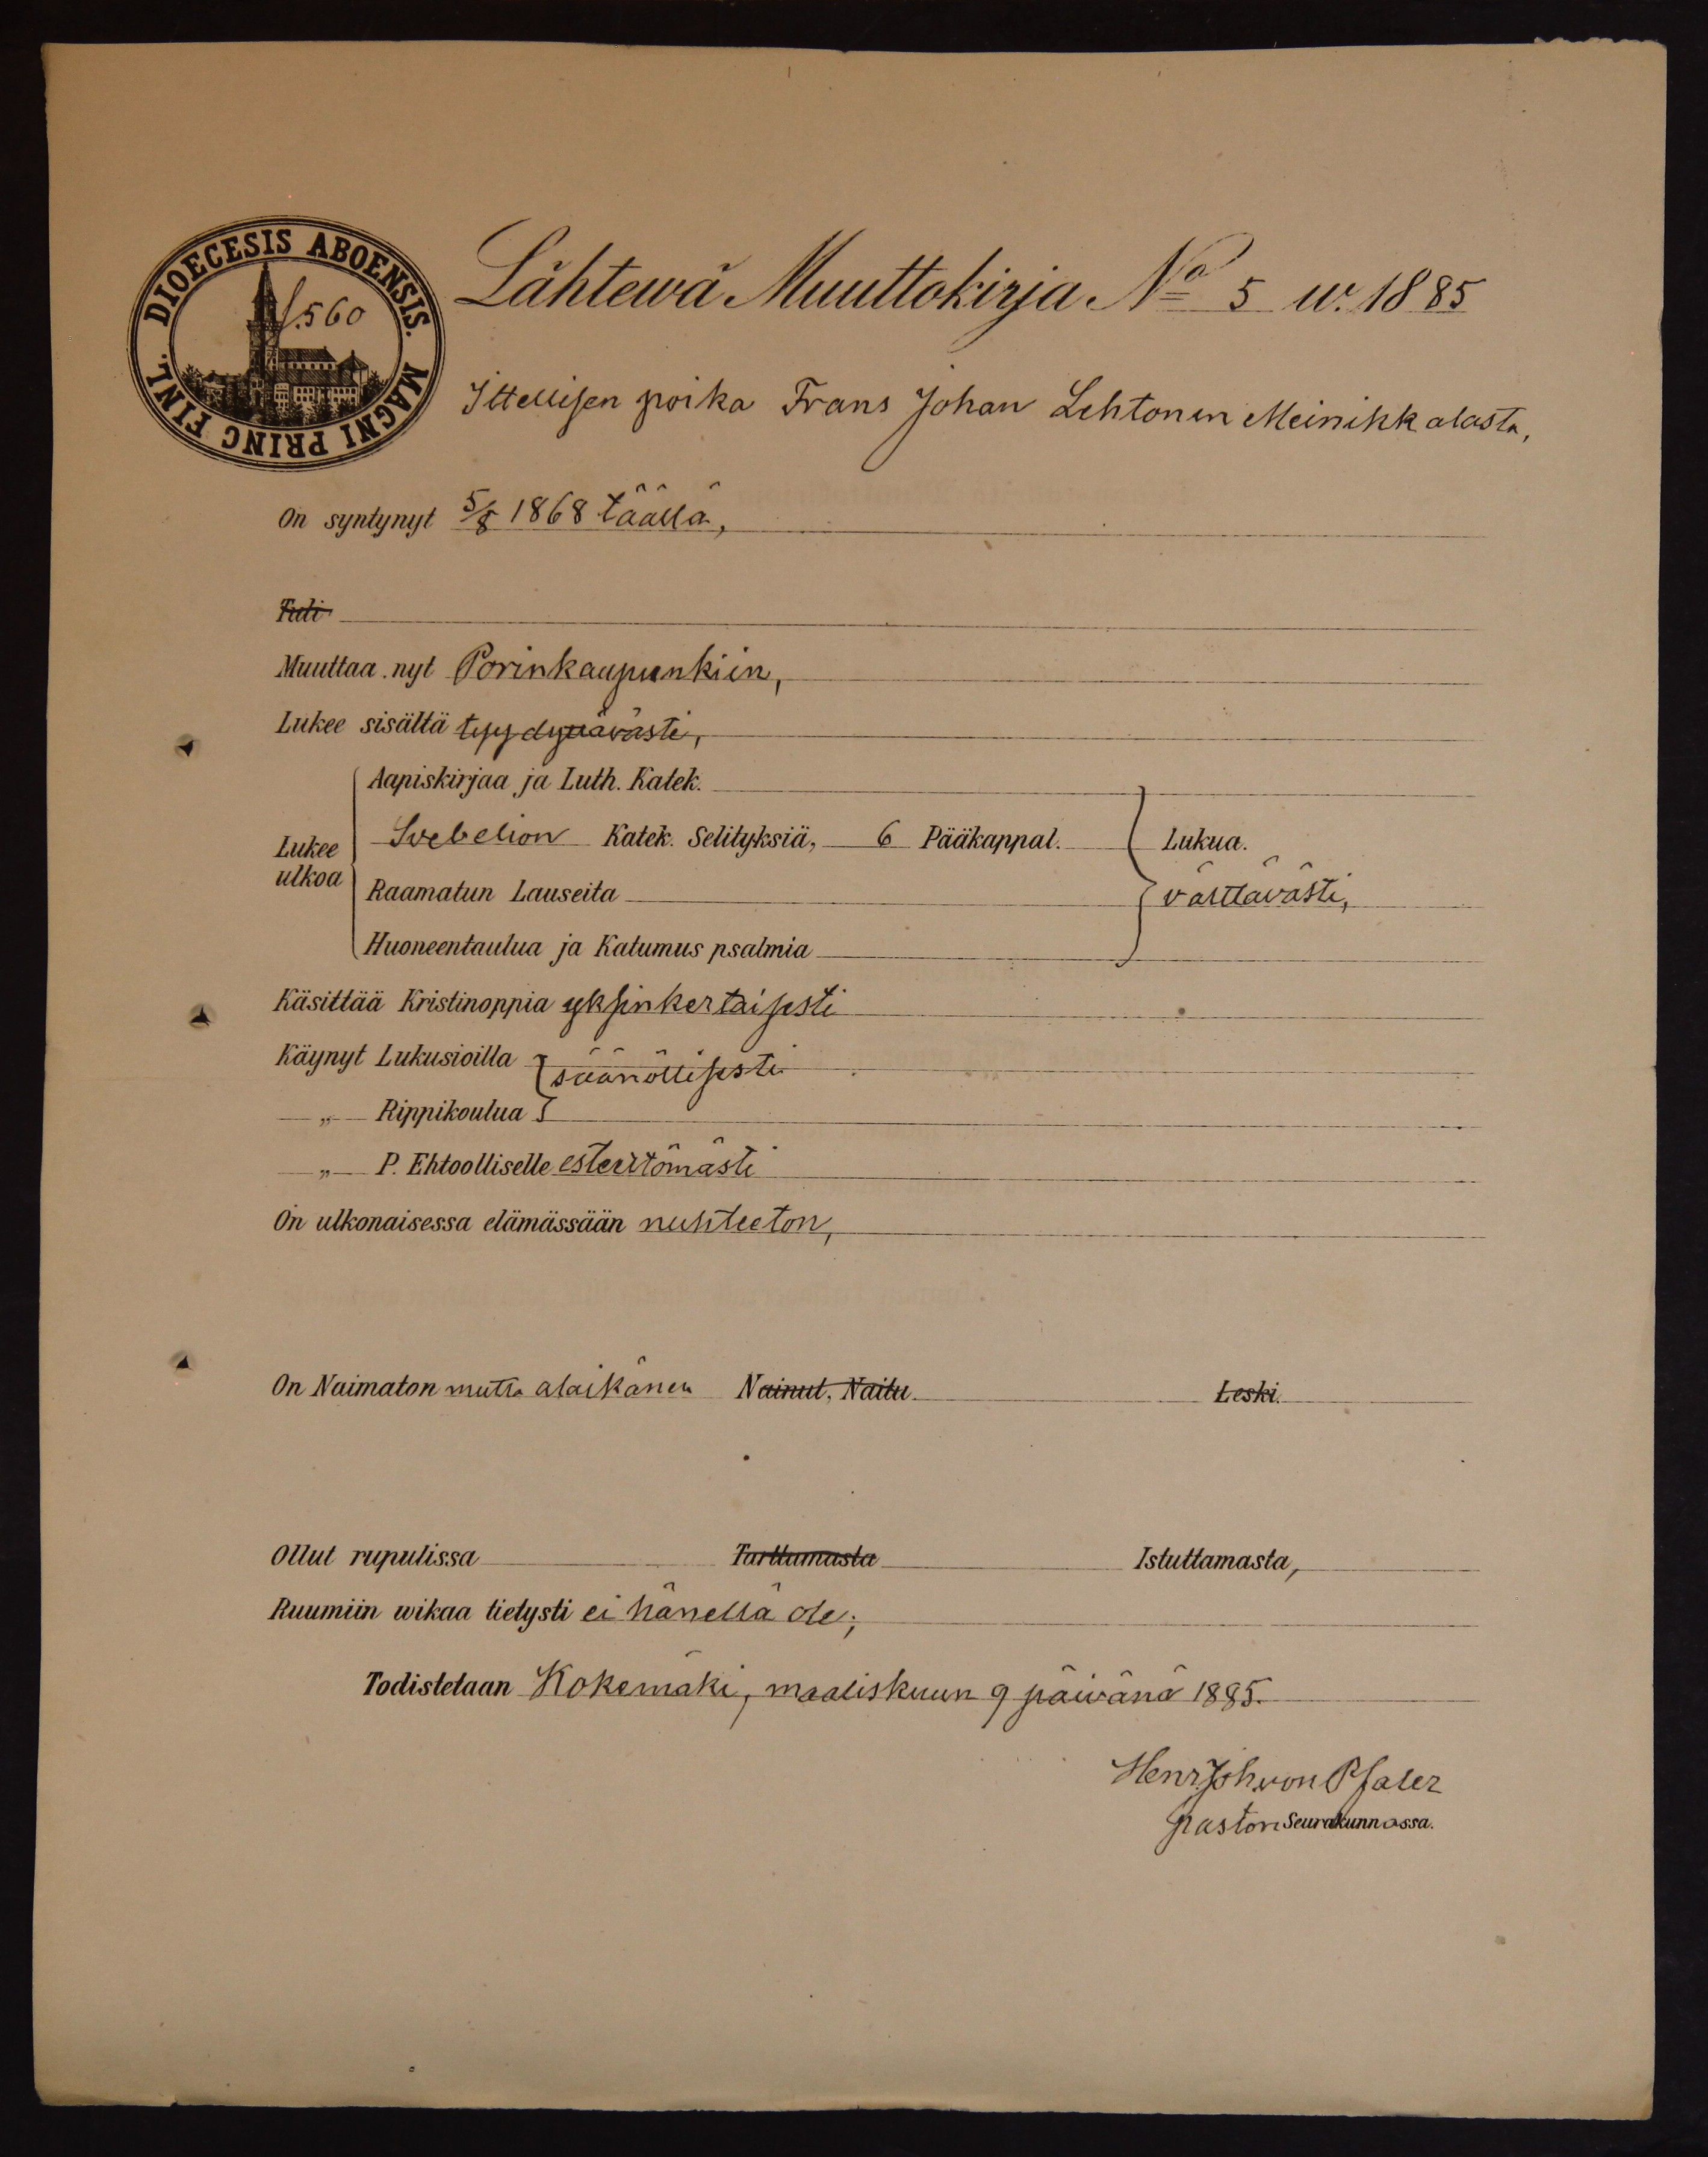 DIOECESIS ABOENSIS. MAGNI PRINC FINL.
f.560
Lähtewä Muuttokirja No 5 w. 1885
Ittellisen poika Frans Johan Lehtonen Meinikkalasta,
On syntynyt 5/8 1868 täällä,
Tuli
Muuttaa nyt Porinkaupunkiin,
Lukee sisältä tyydyttävästi,
Aapiskirjaa ja Luth. Katek.
Lukee ulkoa
Svebelion Katek. Selityksiä, 6 Pääkappal. Lukua.
Raamatun Lauseita välttävästi,
Huoneentaulua ja Katumus psalmia
Käsittää Kristinoppia yksinkertaisesti
Käynyt Lukusioilla säänöllisesti
„ Rippikoulua
„ P. Ehtoolliselle esteettömästi
On ulkonaisessa elämässään nuhteeton,
On Naimaton mutta alaikänen Nainut, Naitu Leski.
Ollut rupulissa Tarttumasta Istuttamasta,
Ruumiin wikaa tietysti ei hänellä ole;
Todistetaan Kokemäki, maaliskuun 9 päivänä 1885.
Henr. Joh. von Pfaler
pastori Seurakunnassa.